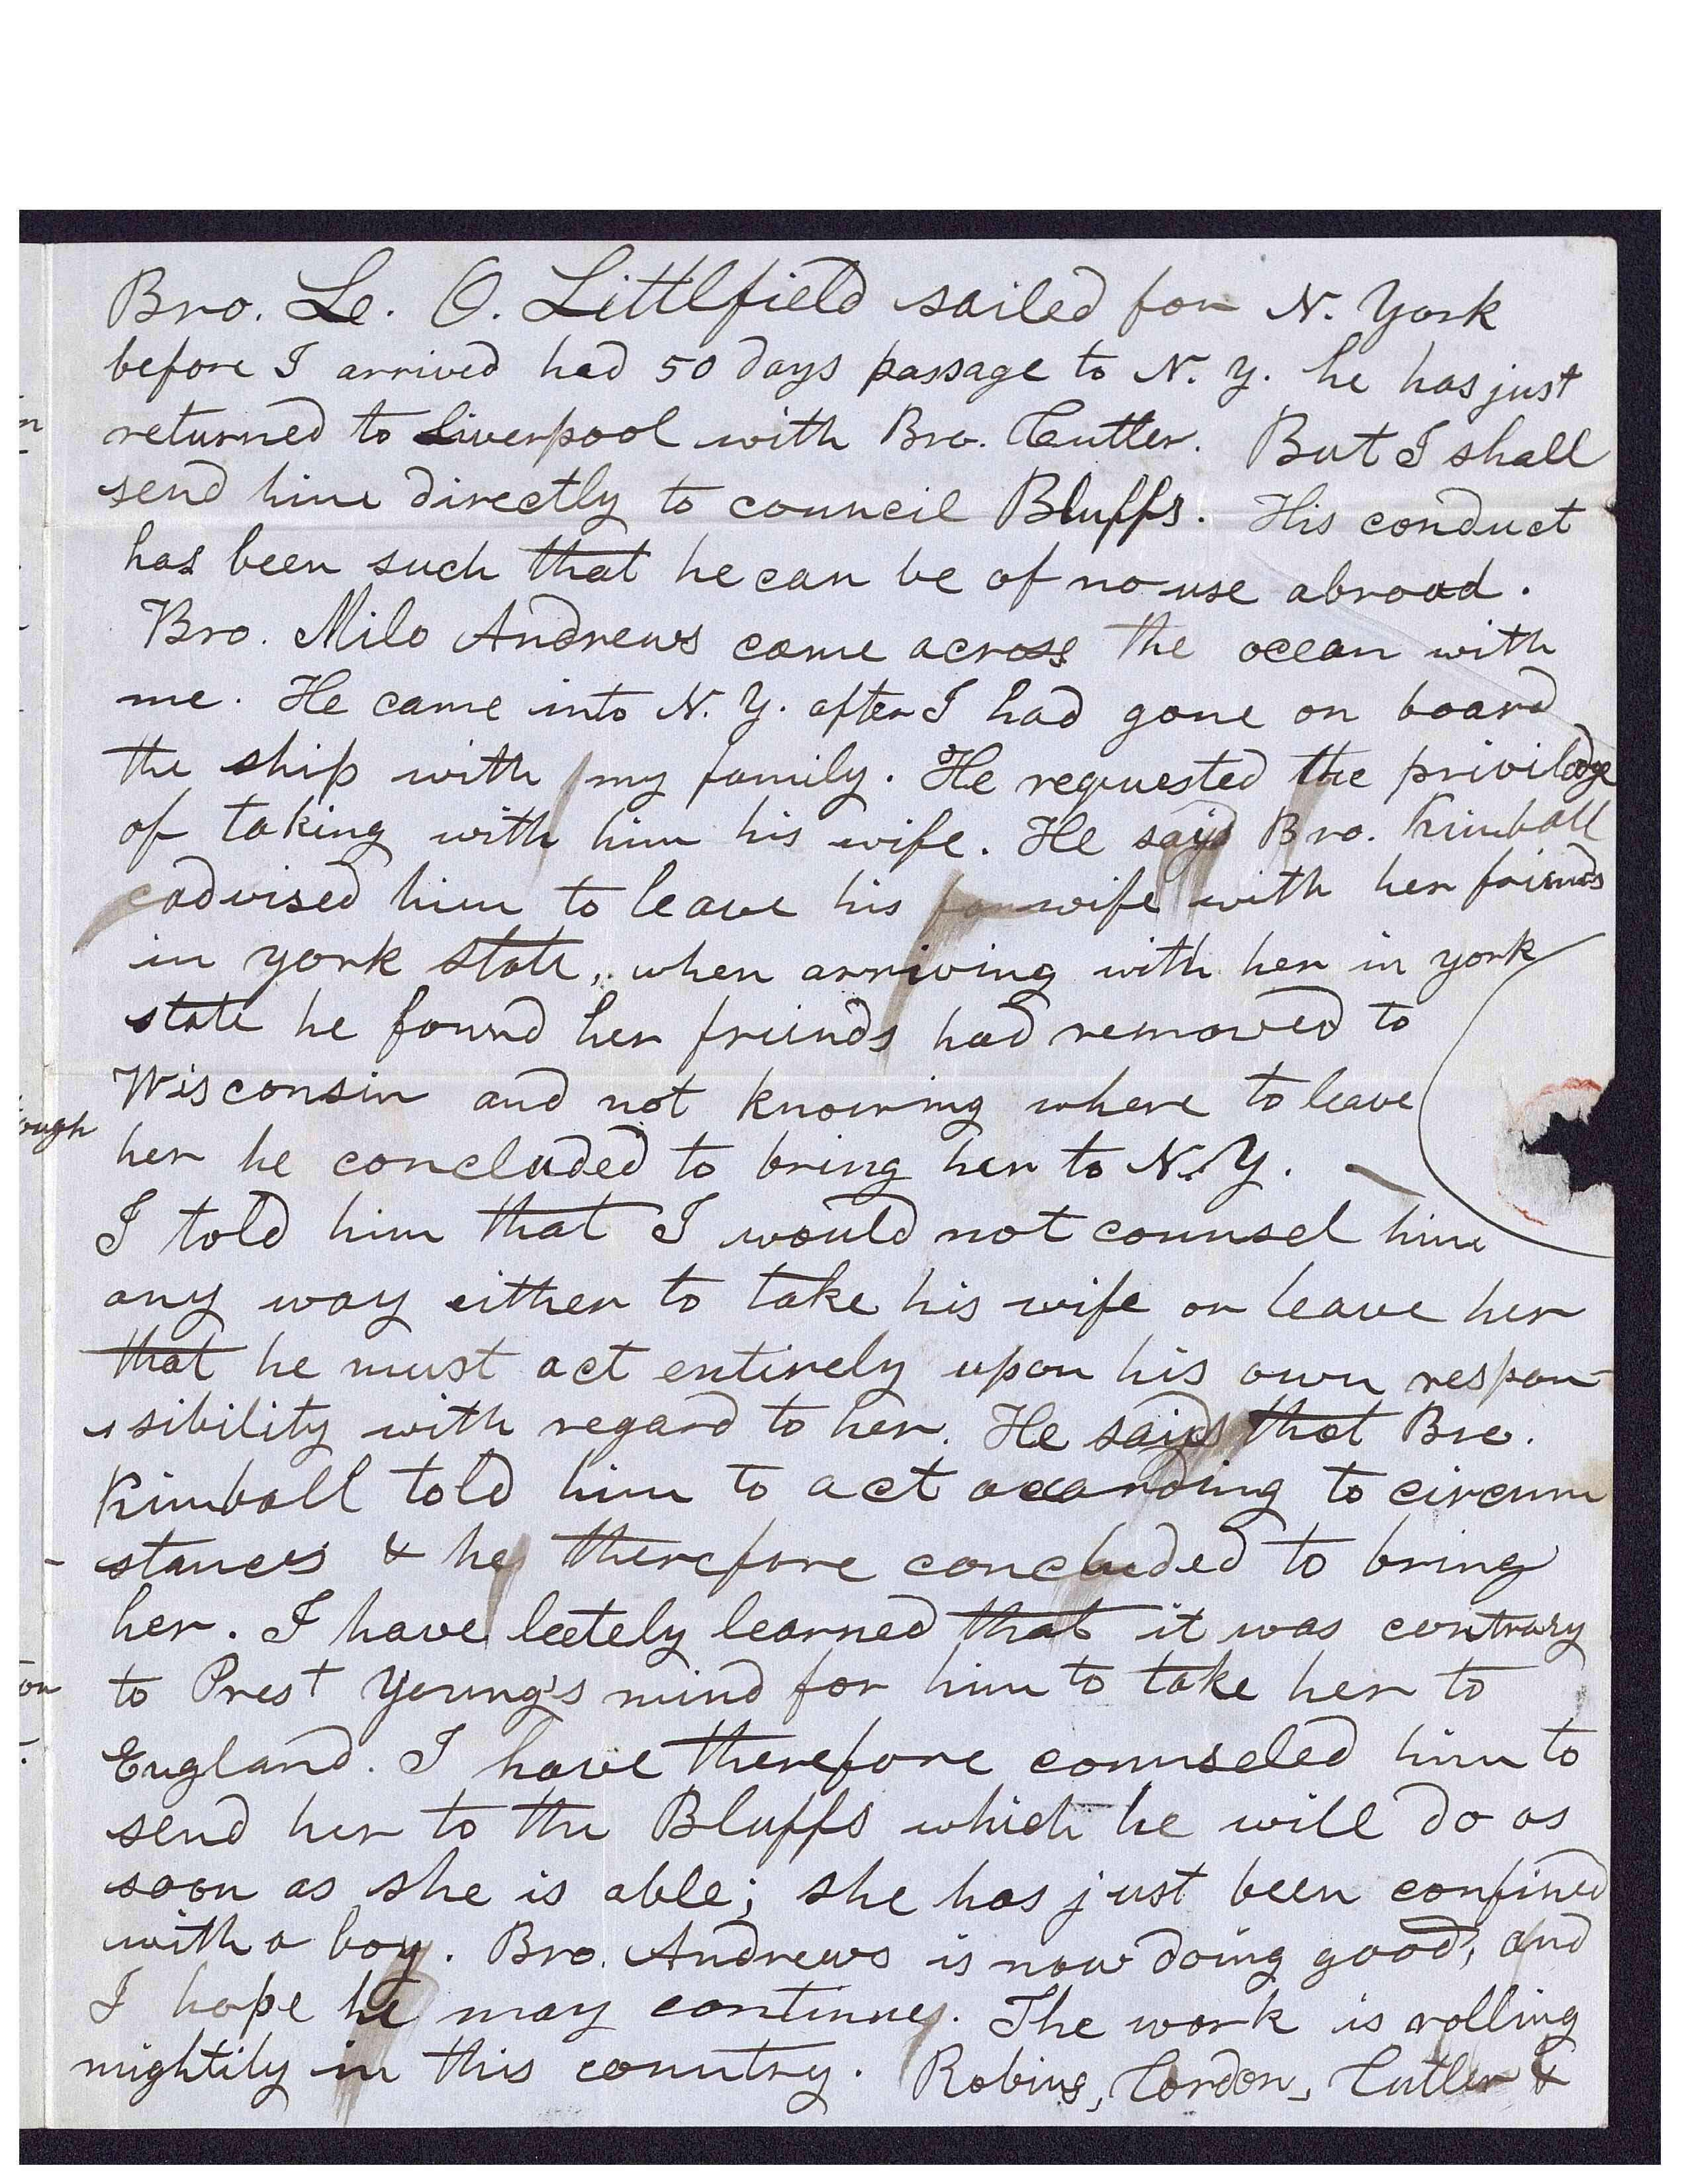 Bro. Le. O. Littlfield sailed for N. York
before I arrived had 50 days passage to N. Y. he has just
returned to Liverpool with Bro. Cutler. But I shall
send him directly to council Bluffs. His conduct
has been such that he can be of no use abroad.
Bro. Milo Andrews came across the ocean with
me. He came into N. Y. after I had gone on board
the ship with my family. He requested the priviledge
of taking with him his wife. He said Bro. Kimball
advised him to leave his wife with her friends
in york state, when arriving with her in york
state he found her friends had removed to
Wisconsin and not knowing where to leave
her he concluded to bring her to N. Y.
I told him that I would not counsel him
any way either to take his wife or leave her
that he must act entirely upon his own respon-
sibility with regard to her. He said that Bro.
Kimball told him to act according to circum
stances & he therefore concluded to bring
her. I have leetely learned that it was contrary
to Prest Young's mind for him to take her to
England. I have therefore counseled him to
send her to the Bluffs which he will do as
soon as she is able; she has just been confined
with a boy. Bro. Andrews is now doing good, and
I hope he may continue. The work is rolling
mightily in this country. Robins, Cordon, Cutler &
ough
on
n